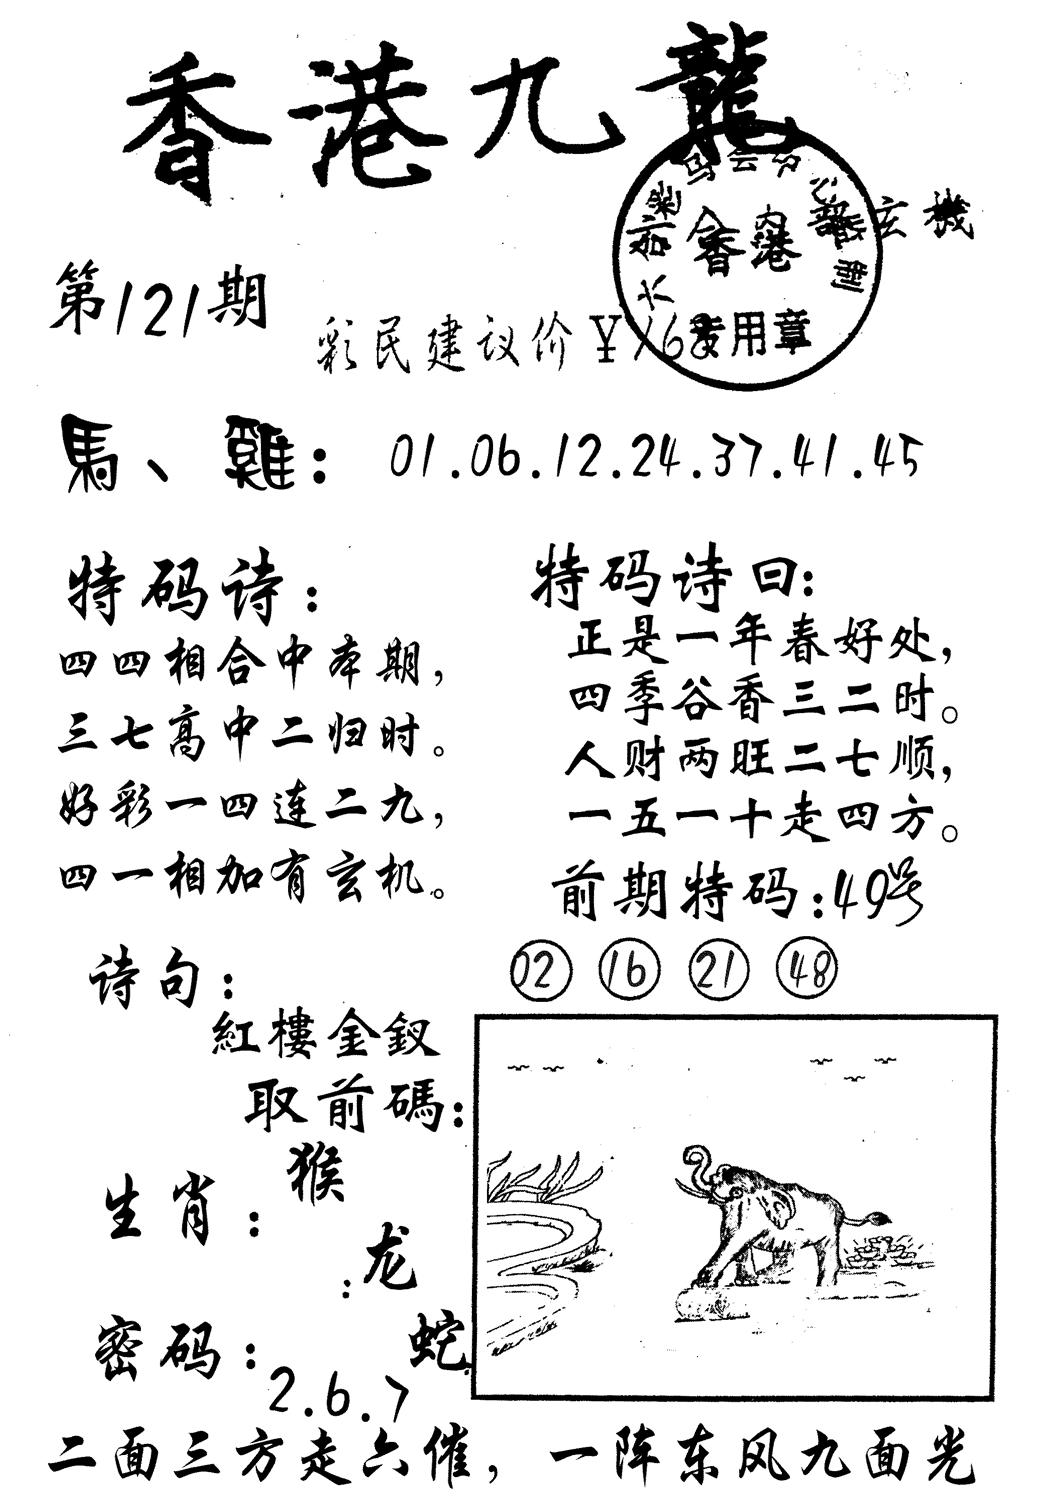 香港九龍
香港
玄機
专用章
第121期
彩民建议价¥168
馬、雞：01.06.12.24.37.41.45
特码诗：
四四相合中本期，
三七高中二归时。
好彩一四连二九，
四一相加有玄机。
特码诗曰：
正是一年春好处，
四季谷香三二时。
人财两旺二七顺，
一五一十走四方。
前期特码：49号
02 16 21 48
诗句：
紅樓金釵
取前碼：
生肖：
猴
：龙
蛇
密码：
2.6.7
二面三方走六催，一阵东风九面光